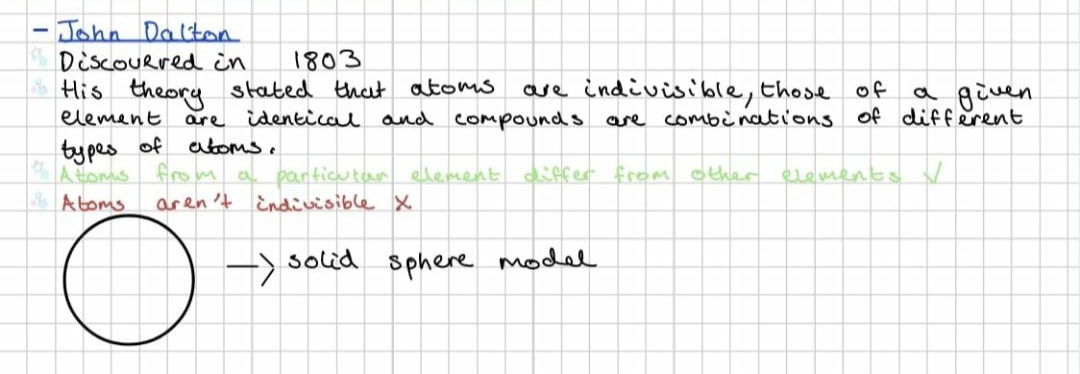 - John Dalton
Discovered in 1803
His theory stated that atoms are indivisible, those of a given
element are identical and compounds are combinations of different
types of atoms.
Atoms from a particular element differ from other elements ✓
Atoms aren't indivisible X
→ solid sphere model